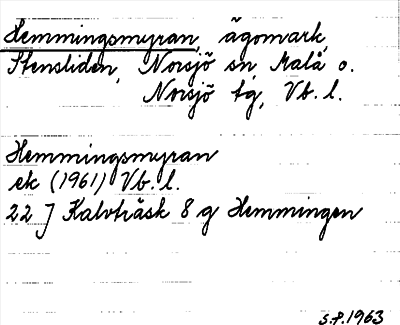 Hemmingsmyran, ägomark,
Stensliden, Norsjö sn, Malå o.
Norsjö tg, Vb. l.
Hemmingsmyran
ek (1961) Vb. l.
22 J Kalvträsk 8 g Hemmingen
S.P. 1963